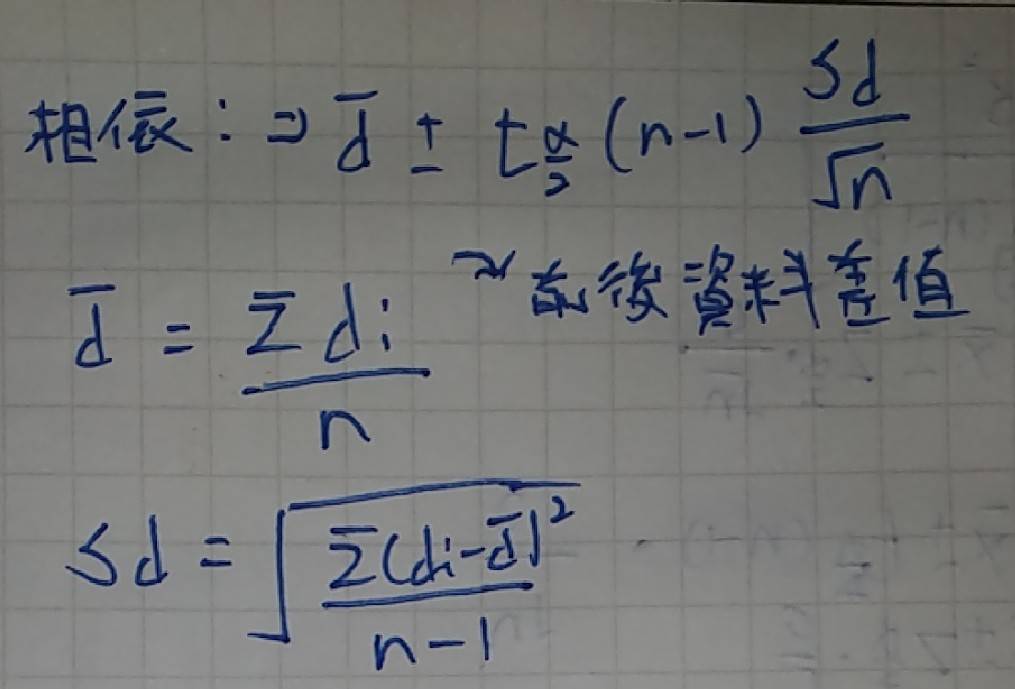 相依：⇒ d̄ ± t_{α/2} (n-1) Sd/√n
d̄ = Σdi/n ~前後資料差值
Sd = √(Σ(di-d̄)²/(n-1))